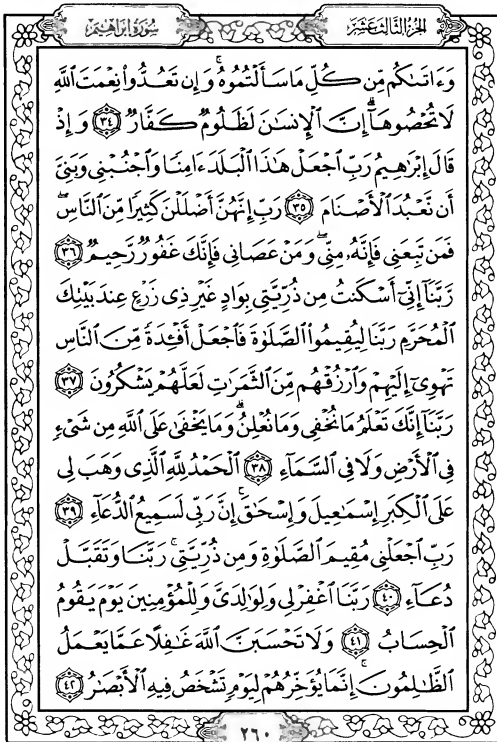 سُورَةُ إِبْرَاهِيم
الجُزْءُ الثَّالِثَ عَشَر
وَءَاتَىٰكُم مِّن كُلِّ مَا سَأَلْتُمُوهُۚ وَإِن تَعُدُّوا۟ نِعْمَتَ ٱللَّهِ
لَا تُحْصُوهَآۗ إِنَّ ٱلْإِنسَٰنَ لَظَلُومٌ كَفَّارٌ ٣٤ وَإِذْ
قَالَ إِبْرَٰهِيمُ رَبِّ ٱجْعَلْ هَٰذَا ٱلْبَلَدَ ءَامِنًا وَٱجْنُبْنِى وَبَنِىَّ
أَن نَّعْبُدَ ٱلْأَصْنَامَ ٣٥ رَبِّ إِنَّهُنَّ أَضْلَلْنَ كَثِيرًا مِّنَ ٱلنَّاسِۖ
فَمَن تَبِعَنِى فَإِنَّهُۥ مِنِّىۖ وَمَنْ عَصَانِى فَإِنَّكَ غَفُورٌ رَّحِيمٌ ٣٦
رَّبَّنَآ إِنِّىٓ أَسْكَنتُ مِن ذُرِّيَّتِى بِوَادٍ غَيْرِ ذِى زَرْعٍ عِندَ بَيْتِكَ
ٱلْمُحَرَّمِ رَبَّنَا لِيُقِيمُوا۟ ٱلصَّلَوٰةَ فَٱجْعَلْ أَفْـِٔدَةً مِّنَ ٱلنَّاسِ
تَهْوِىٓ إِلَيْهِمْ وَٱرْزُقْهُم مِّنَ ٱلثَّمَرَٰتِ لَعَلَّهُمْ يَشْكُرُونَ ٣٧
رَبَّنَآ إِنَّكَ تَعْلَمُ مَا نُخْفِى وَمَا نُعْلِنُۗ وَمَا يَخْفَىٰ عَلَى ٱللَّهِ مِن شَىْءٍ
فِى ٱلْأَرْضِ وَلَا فِى ٱلسَّمَآءِ ٣٨ ٱلْحَمْدُ لِلَّهِ ٱلَّذِى وَهَبَ لِى
عَلَى ٱلْكِبَرِ إِسْمَٰعِيلَ وَإِسْحَٰقَۚ إِنَّ رَبِّى لَسَمِيعُ ٱلدُّعَآءِ ٣٩
رَبِّ ٱجْعَلْنِى مُقِيمَ ٱلصَّلَوٰةِ وَمِن ذُرِّيَّتِىۚ رَبَّنَا وَتَقَبَّلْ
دُعَآءِ ٤٠ رَبَّنَا ٱغْفِرْ لِى وَلِوَٰلِدَىَّ وَلِلْمُؤْمِنِينَ يَوْمَ يَقُومُ
ٱلْحِسَابُ ٤١ وَلَا تَحْسَبَنَّ ٱللَّهَ غَٰفِلًا عَمَّا يَعْمَلُ
ٱلظَّٰلِمُونَۚ إِنَّمَا يُؤَخِّرُهُمْ لِيَوْمٍ تَشْخَصُ فِيهِ ٱلْأَبْصَٰرُ ٤٢
٢٦٠